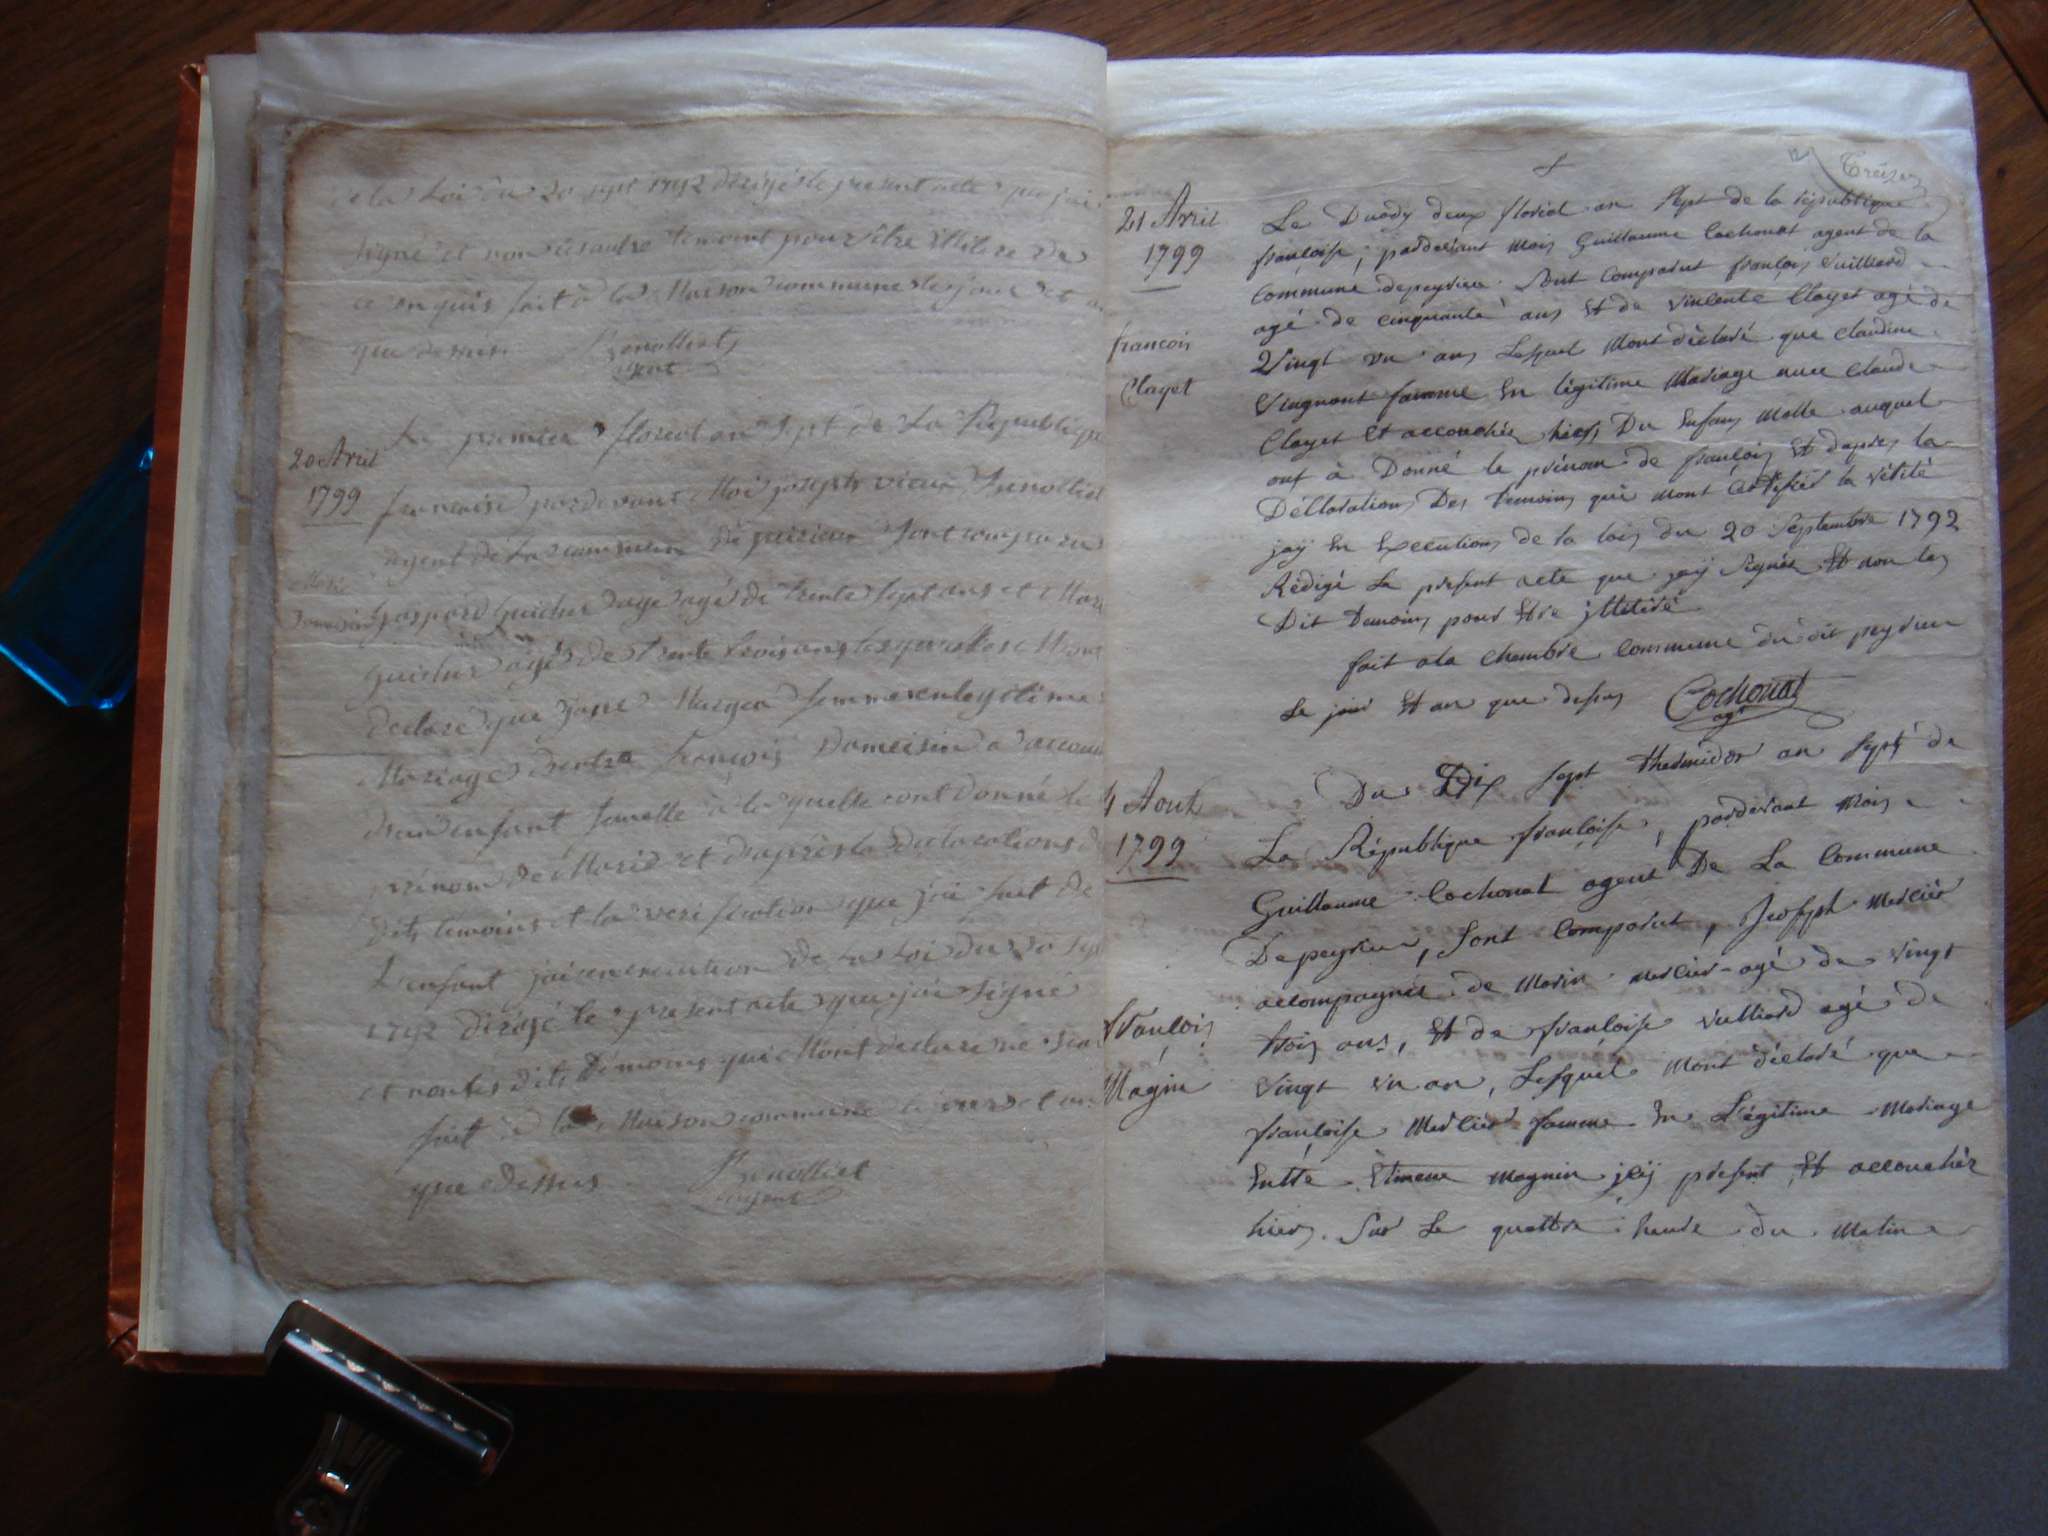 de la Loi du 20 sept 1792 dirigé le present acte que jai
signé et non
fait à la Maison commune le jour et an
que dessus Benolliet
agent
Le premier floreal an sept de La Republique
20 Avril
1799
francoise pardevant Moi joseph vieux Benolliet
agent de la commune de peirieu sont comparu
Marie
Domeisin
Gaspard Guichar agé de trente sept ans et Mari
guichar agé de trente trois ans lesquelles Mont
declaré que femme en legitime
Mariage dentre francois Domeisin a accou
dun enfant femelle à la quelle ont donné le
prenom de Marie et daprès la declarations d
dits temoins et la verification que jai fait de
Lenfant jai en execution de La Loi du 20 sept
1792 dirigé le present acte que jai signé
et non les dits temoins qui Mont declaré ne
fait à la Maison commune le jour et an
que dessus Benolliet
agent
12 Treize
21 Avril
1799
francois
Clayet
Le Duody deux floréal an Sept de la république
françoise, pardevant Mois Guillaume Cochonat agent de la
Commune depeyrieu. Sont Comparut françois Vuilliard
agé de cinquante ans Et de Vincente Clayet agé de
Vingt un ans Lesquel Mont déclaré que claudine
famme En légitime Mariage avec Claude
Clayet Et accouchér hiers Du Enfans Malle auquel
ont à Donné le prénom de françois Et dapres la
Déclaration Des temoins qui mont Certifier la vérité
jaÿ En Execution de la lois du 20 Septembre 1792
Rédigé Le présent acte que jaÿ signér Et non les
Dit temoins pour Etre illitéré
fait a la Chambre Commune du dit peyrieu
Le jour Et an que desus Cochonat
agt
4 Aout
1799
François
Magnin
Du Dix Sept thermidor an Sept de
La République françoise, pardevant Mois
Guillaume Cochonat agent De La Commune
De peyrieu, Sont Comparut, Joseph Mercier
accompagnée de Marin Mercier agé de vingt
trois ans, Et de françoise vulliard agé de
vingt un an, Lesquel Mont déclaré que
françoise Mercier famme En Légitime Mariage
Entre Etiennne Magnin jcÿ présent Et accouchér
hiers Sur Le quattre heure du Matin